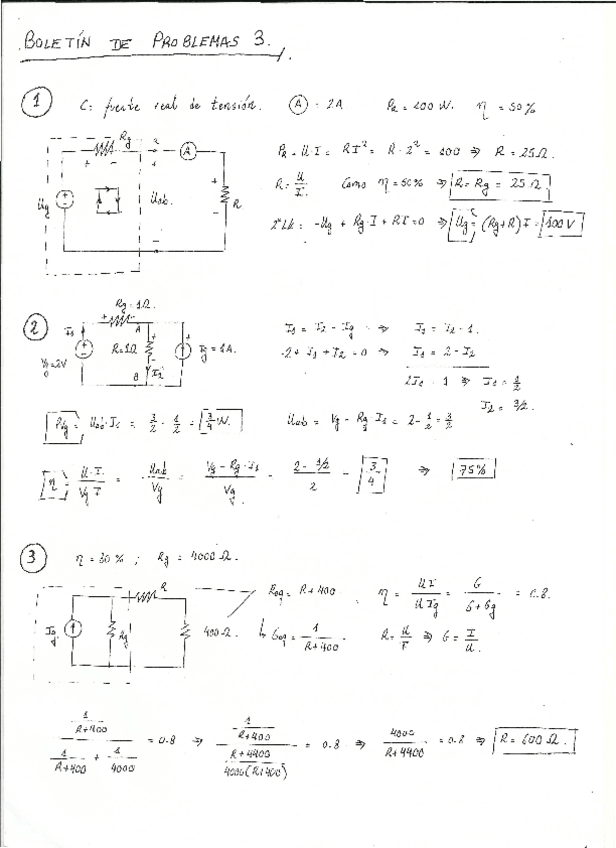 BOLETÍN DE PROBLEMAS 3.
1 C: fuente real de tensión. A = 2A PR = 100 W. η = 50%
Rg A
Ug Uab. R
PR = U·I = RI² = R·2² = 100 ⇒ R = 25Ω.
R = U/I. Como η = 50% ⇒ R = Rg = 25Ω
2ª LK: -Ug + Rg·I + RI = 0 ⇒ Ug = (Rg+R)I = 100V
2 Rg = 1Ω
I1 A
Vg=2V R=1Ω Ig = 1A.
B I2
I1 = I2 - Ig ⇒ I1 = I2 - 1.
-2 + I1 + I2 = 0 ⇒ I1 = 2 - I2
2I1 = 1 ⇒ I1 = 1/2
I2 = 3/2.
PVg = Uab·I1 = 3/2 · 1/2 = 3/4 W. Uab = Vg - Rg·I1 = 2 - 1/2 = 3/2
η = U·I/Vg I = Uab/Vg = Vg - Rg·I1/Vg = 2 - 1/2/2 = 3/4 ⇒ 75%
3 η = 80% ; Rg = 4000 Ω.
R
Ig Rg 400Ω.
Req = R+400 η = UI/UIg = G/G+Gg = 0.8.
Geq = 1/R+400 R = U/I ⇒ G = I/U.
1/R+400 / 1/R+400 + 1/4000 = 0.8 ⇒ 1/R+400 / R+4400/4000(R+400) = 0.8 ⇒ 4000/R+4400 = 0.8 ⇒ R = 600Ω.